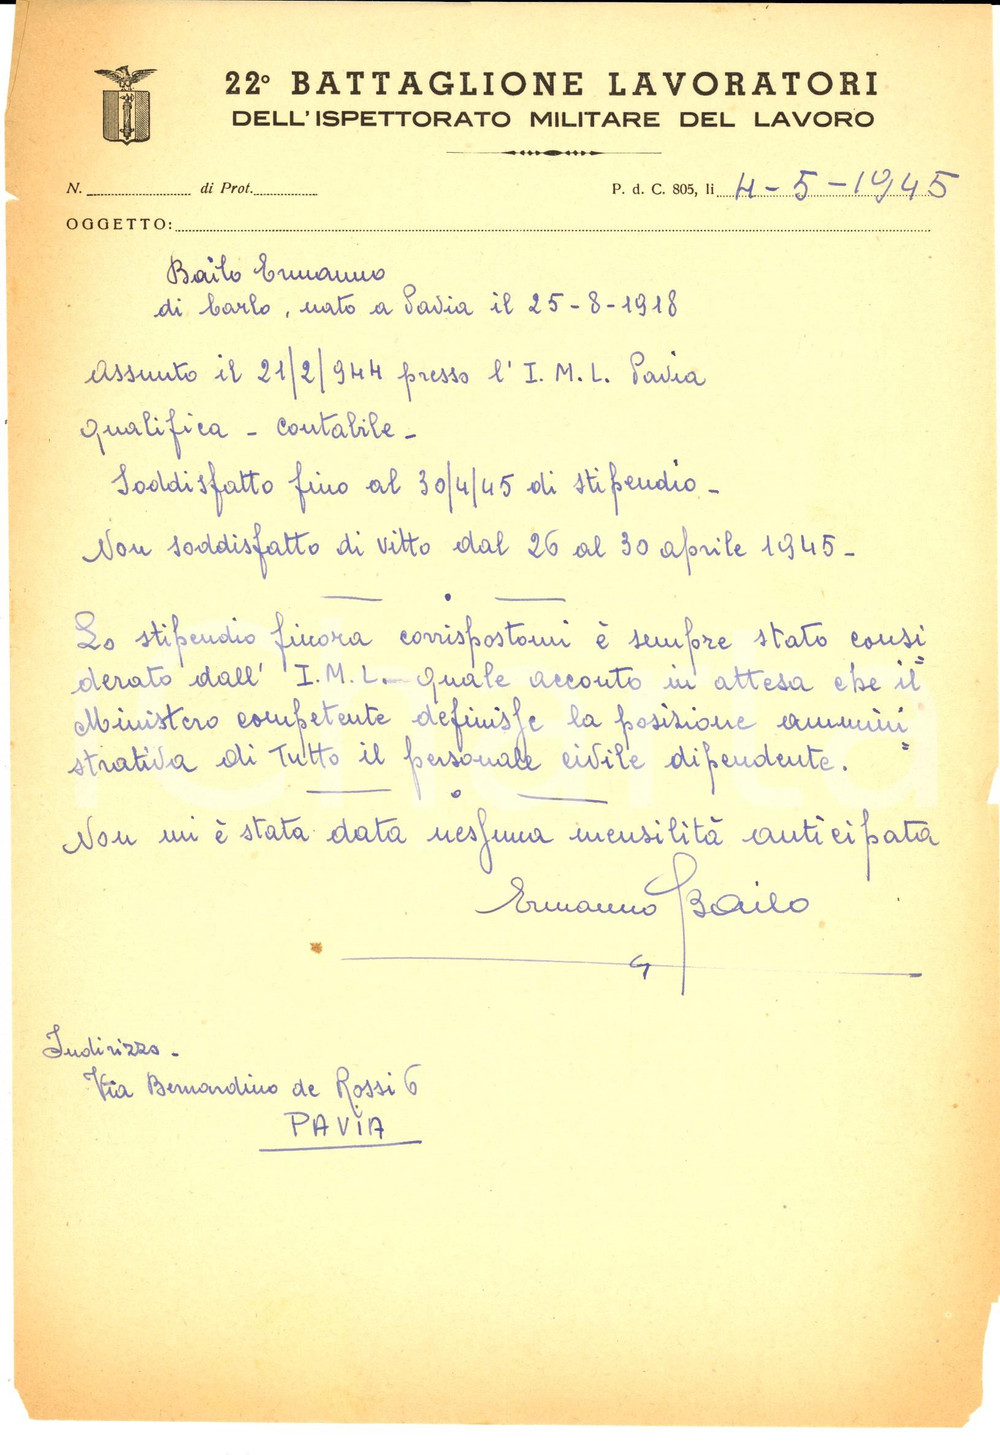 22° BATTAGLIONE LAVORATORI
DELL'ISPETTORATO MILITARE DEL LAVORO
N. di Prot.
P. d. C. 805, li 4-5-1945
OGGETTO:
Bailo Ermanno
di Carlo, nato a Pavia il 25-8-1918
Assunto il 21/2/944 presso l' I. M. L. Pavia
qualifica - contabile -
Soddisfatto fino al 30/4/45 di stipendio -
Non soddisfatto di vitto dal 26 al 30 aprile 1945 -
Lo stipendio finora corrispostomi è sempre stato consi
derato dall' I. M. L. quale acconto in attesa che il =
Ministero competente definisse la posizione ammini
strativa di tutto il personale civile dipendente. =
Non mi è stata data nessuna mensilità anticipata
Ermanno Bailo
Indirizzo -
Via Bernardino de Rossi 6
PAVIA